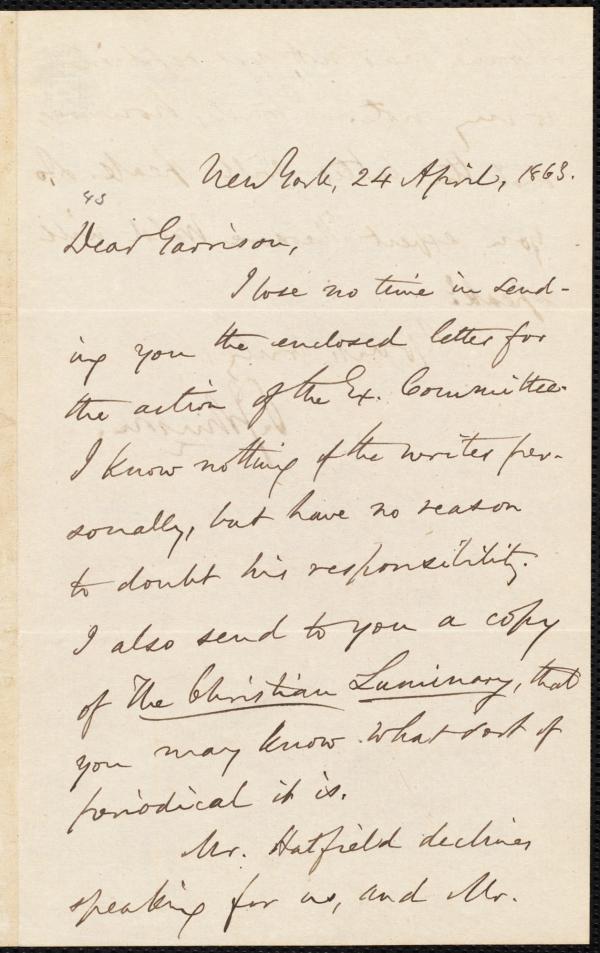 New York, 24 April, 1863.
43
Dear Garrison,
I lose no time in send-
ing you the enclosed letter for
the action of the Ex. Committee.
I know nothing of the writer per-
sonally, but have no reason
to doubt his responsibility.
I also send to you a copy
of The Christian Luminary, that
you may know what sort of
periodical it is.
Mr. Hatfield declines
speaking for us, and Mr.